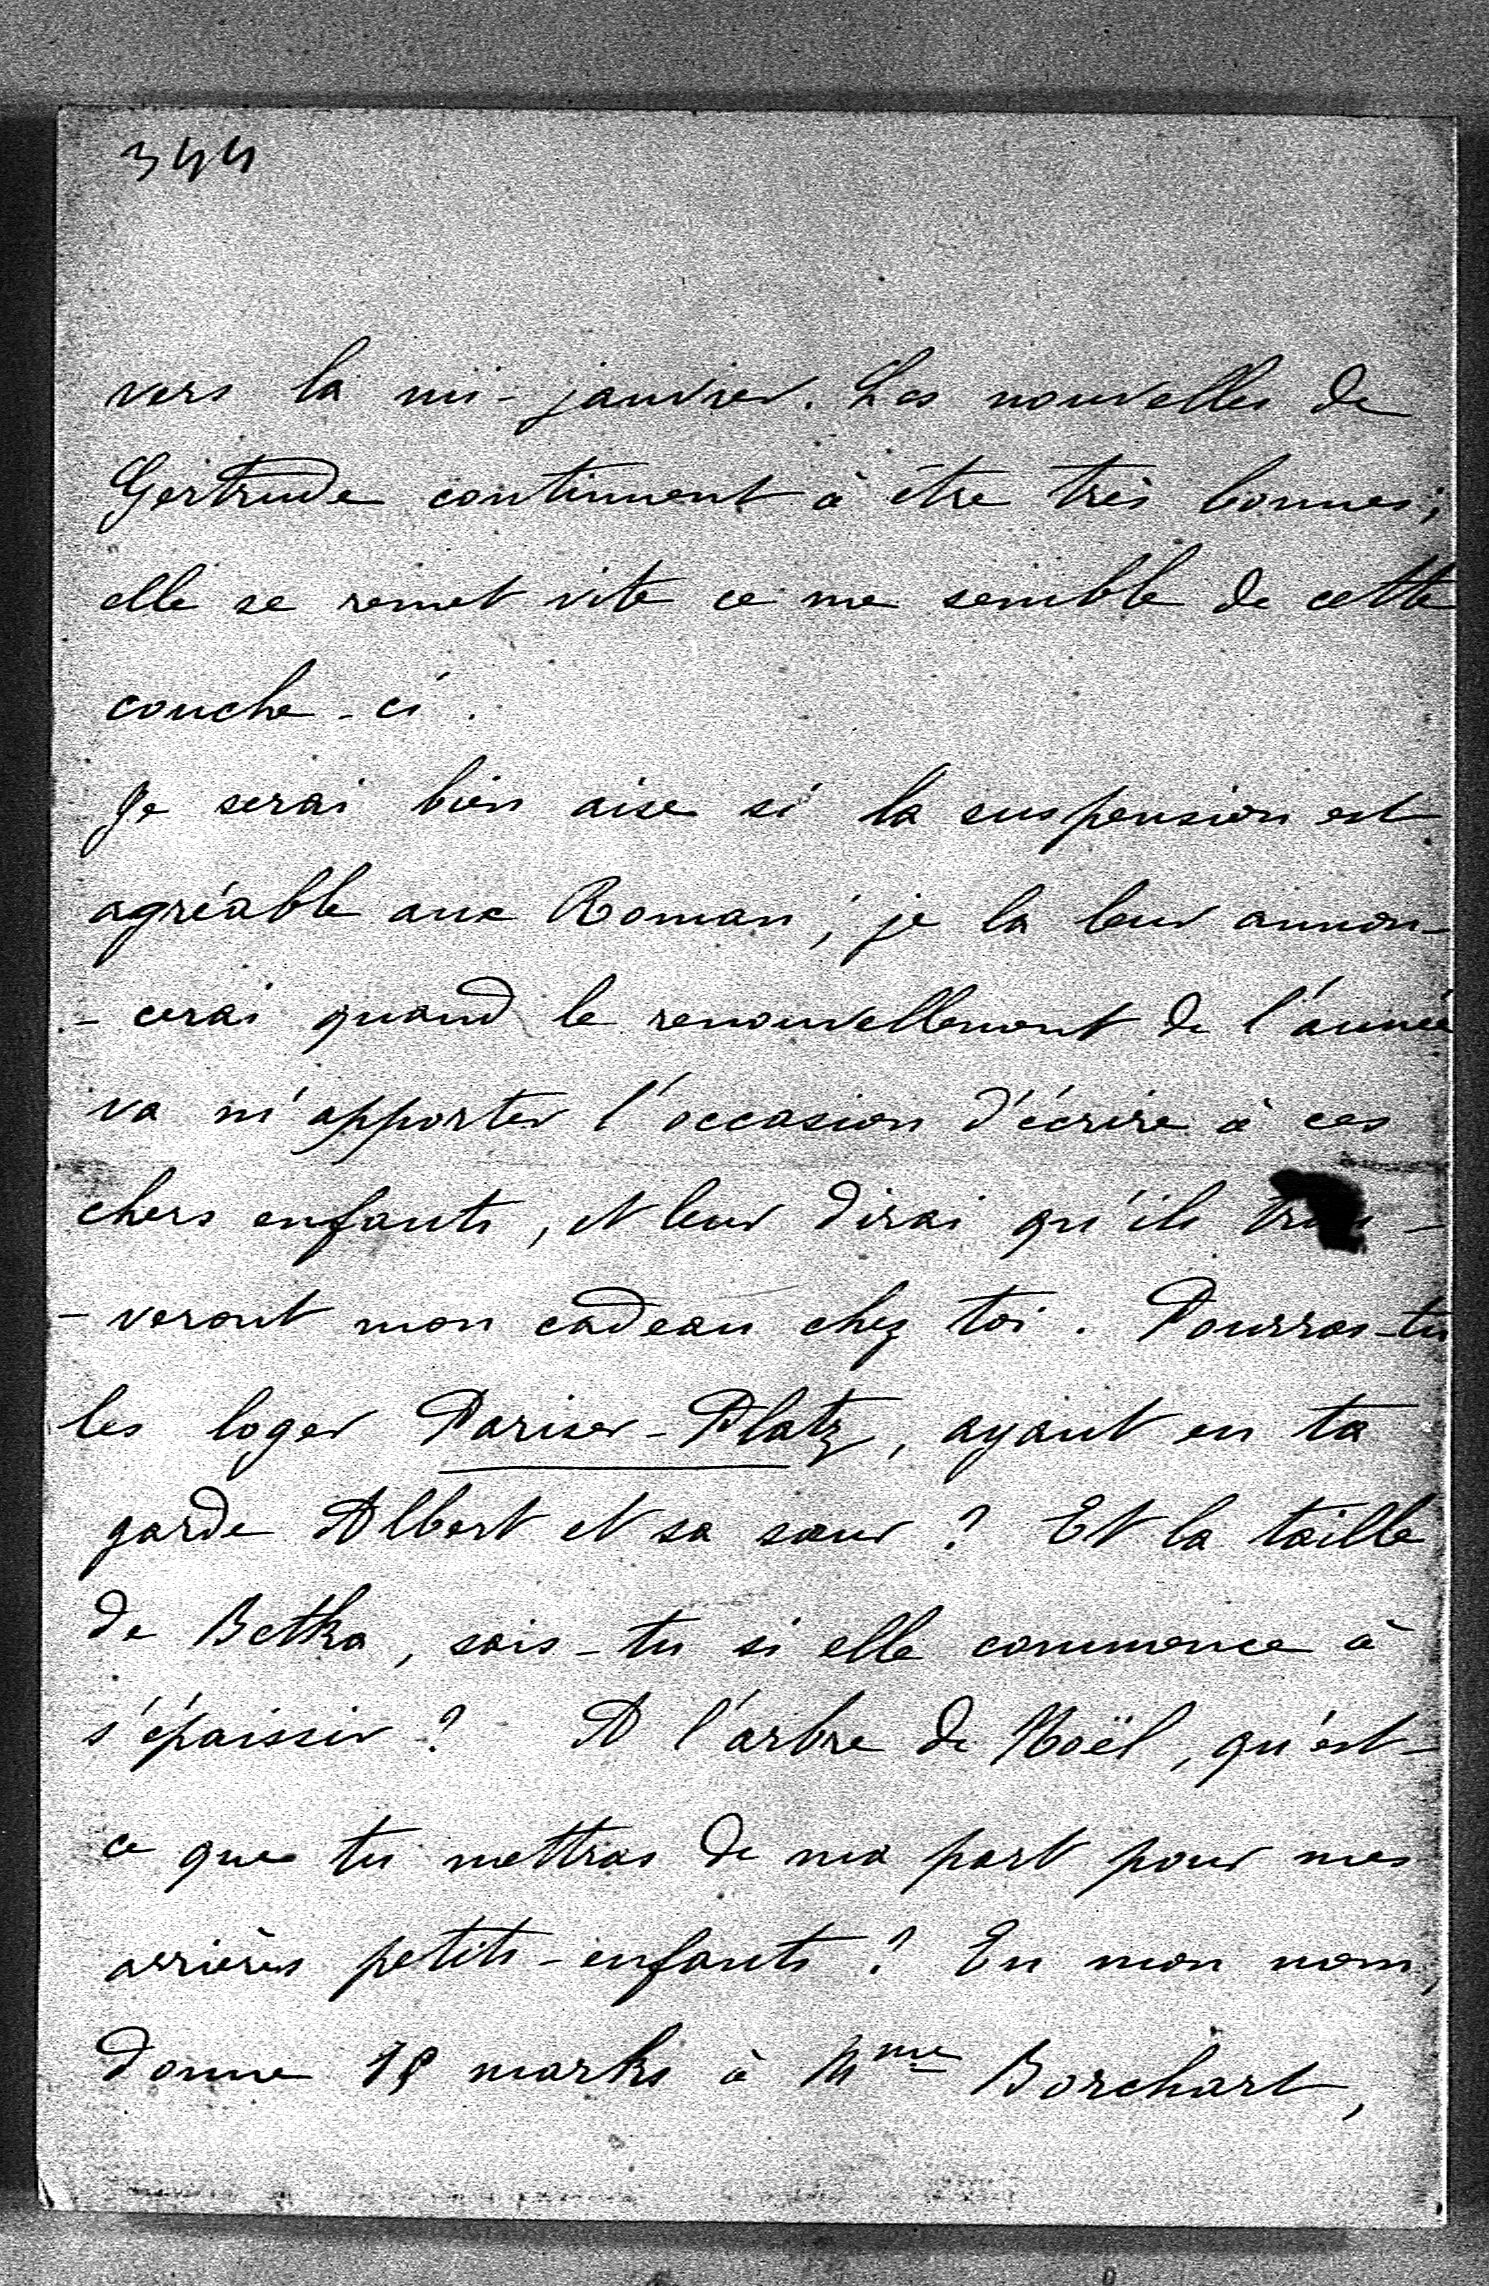 344
vers la mi-janvier. Les nouvelles de
Gertrude continuent à être très bonnes;
elle se remet vite ce me semble de cette
couche-ci.
Je serai bien aise si la suspension est
agréable aux Roman; je la leur annon-
-cerai quand le renouvellement de l'année
va m'apporter l'occasion d'écrire à ces
chers enfants, et leur dirai qu'ils trou-
-veront mon cadeau chez toi. Pourras-tu
les loger Pariser-Platz, ayant en ta
garde Albert et sa sœur? Et la taille
de Betka, sais-tu si elle commence à
s'épaissir? A l'arbre de Noël, qu'est-
ce que tu mettras de ma part pour mes
arrières petits-enfants? En mon nom,
donne marks à Mme Borchart,